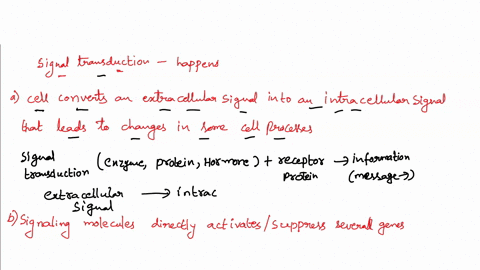 Signal transduction - happens
a) cell converts an extracellular signal into an intracellular signal
that leads to changes in some cell processes
Signal transduction (enzyme, protein, Hormore) + receptor protein → information (message→)
extracellular signal → intrac
b) Signaling molecules directly activates/suppress several genes